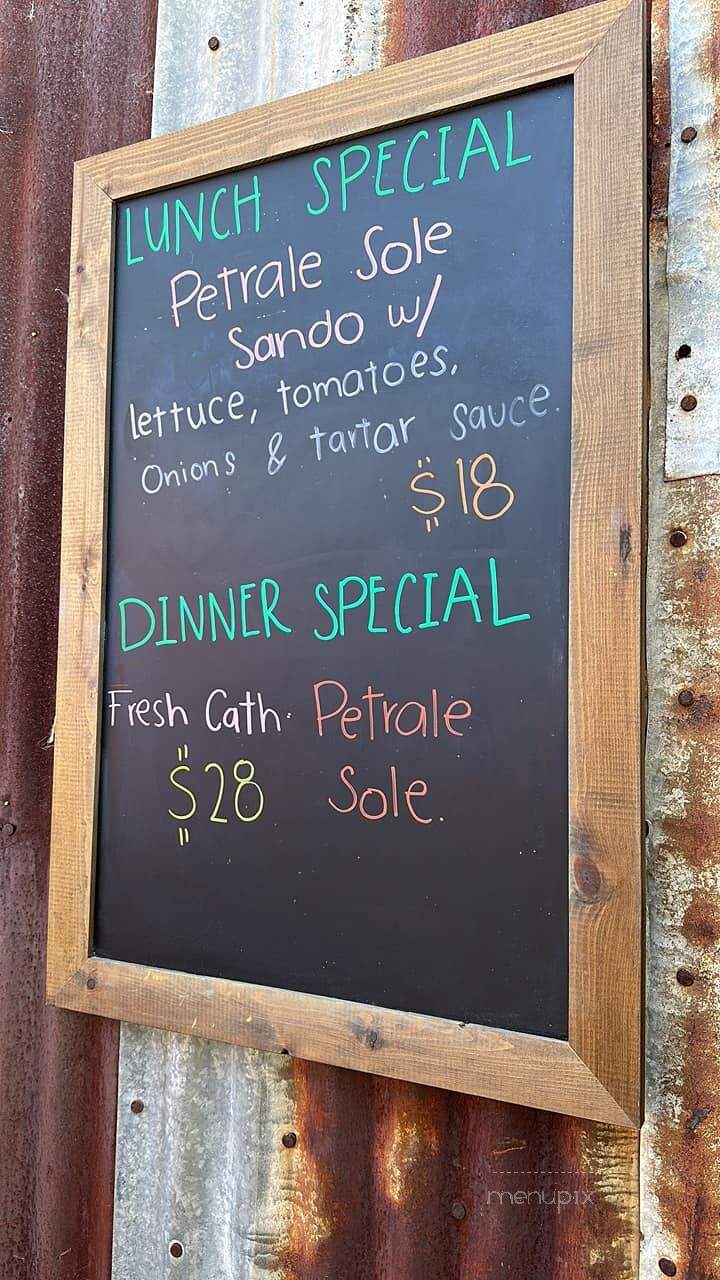 LUNCH SPECIAL
Petrale Sole
Sando w/
lettuce, tomatoes,
Onions & tartar sauce.
$18
DINNER SPECIAL
Fresh Cath. Petrale
$28 Sole.
menupix